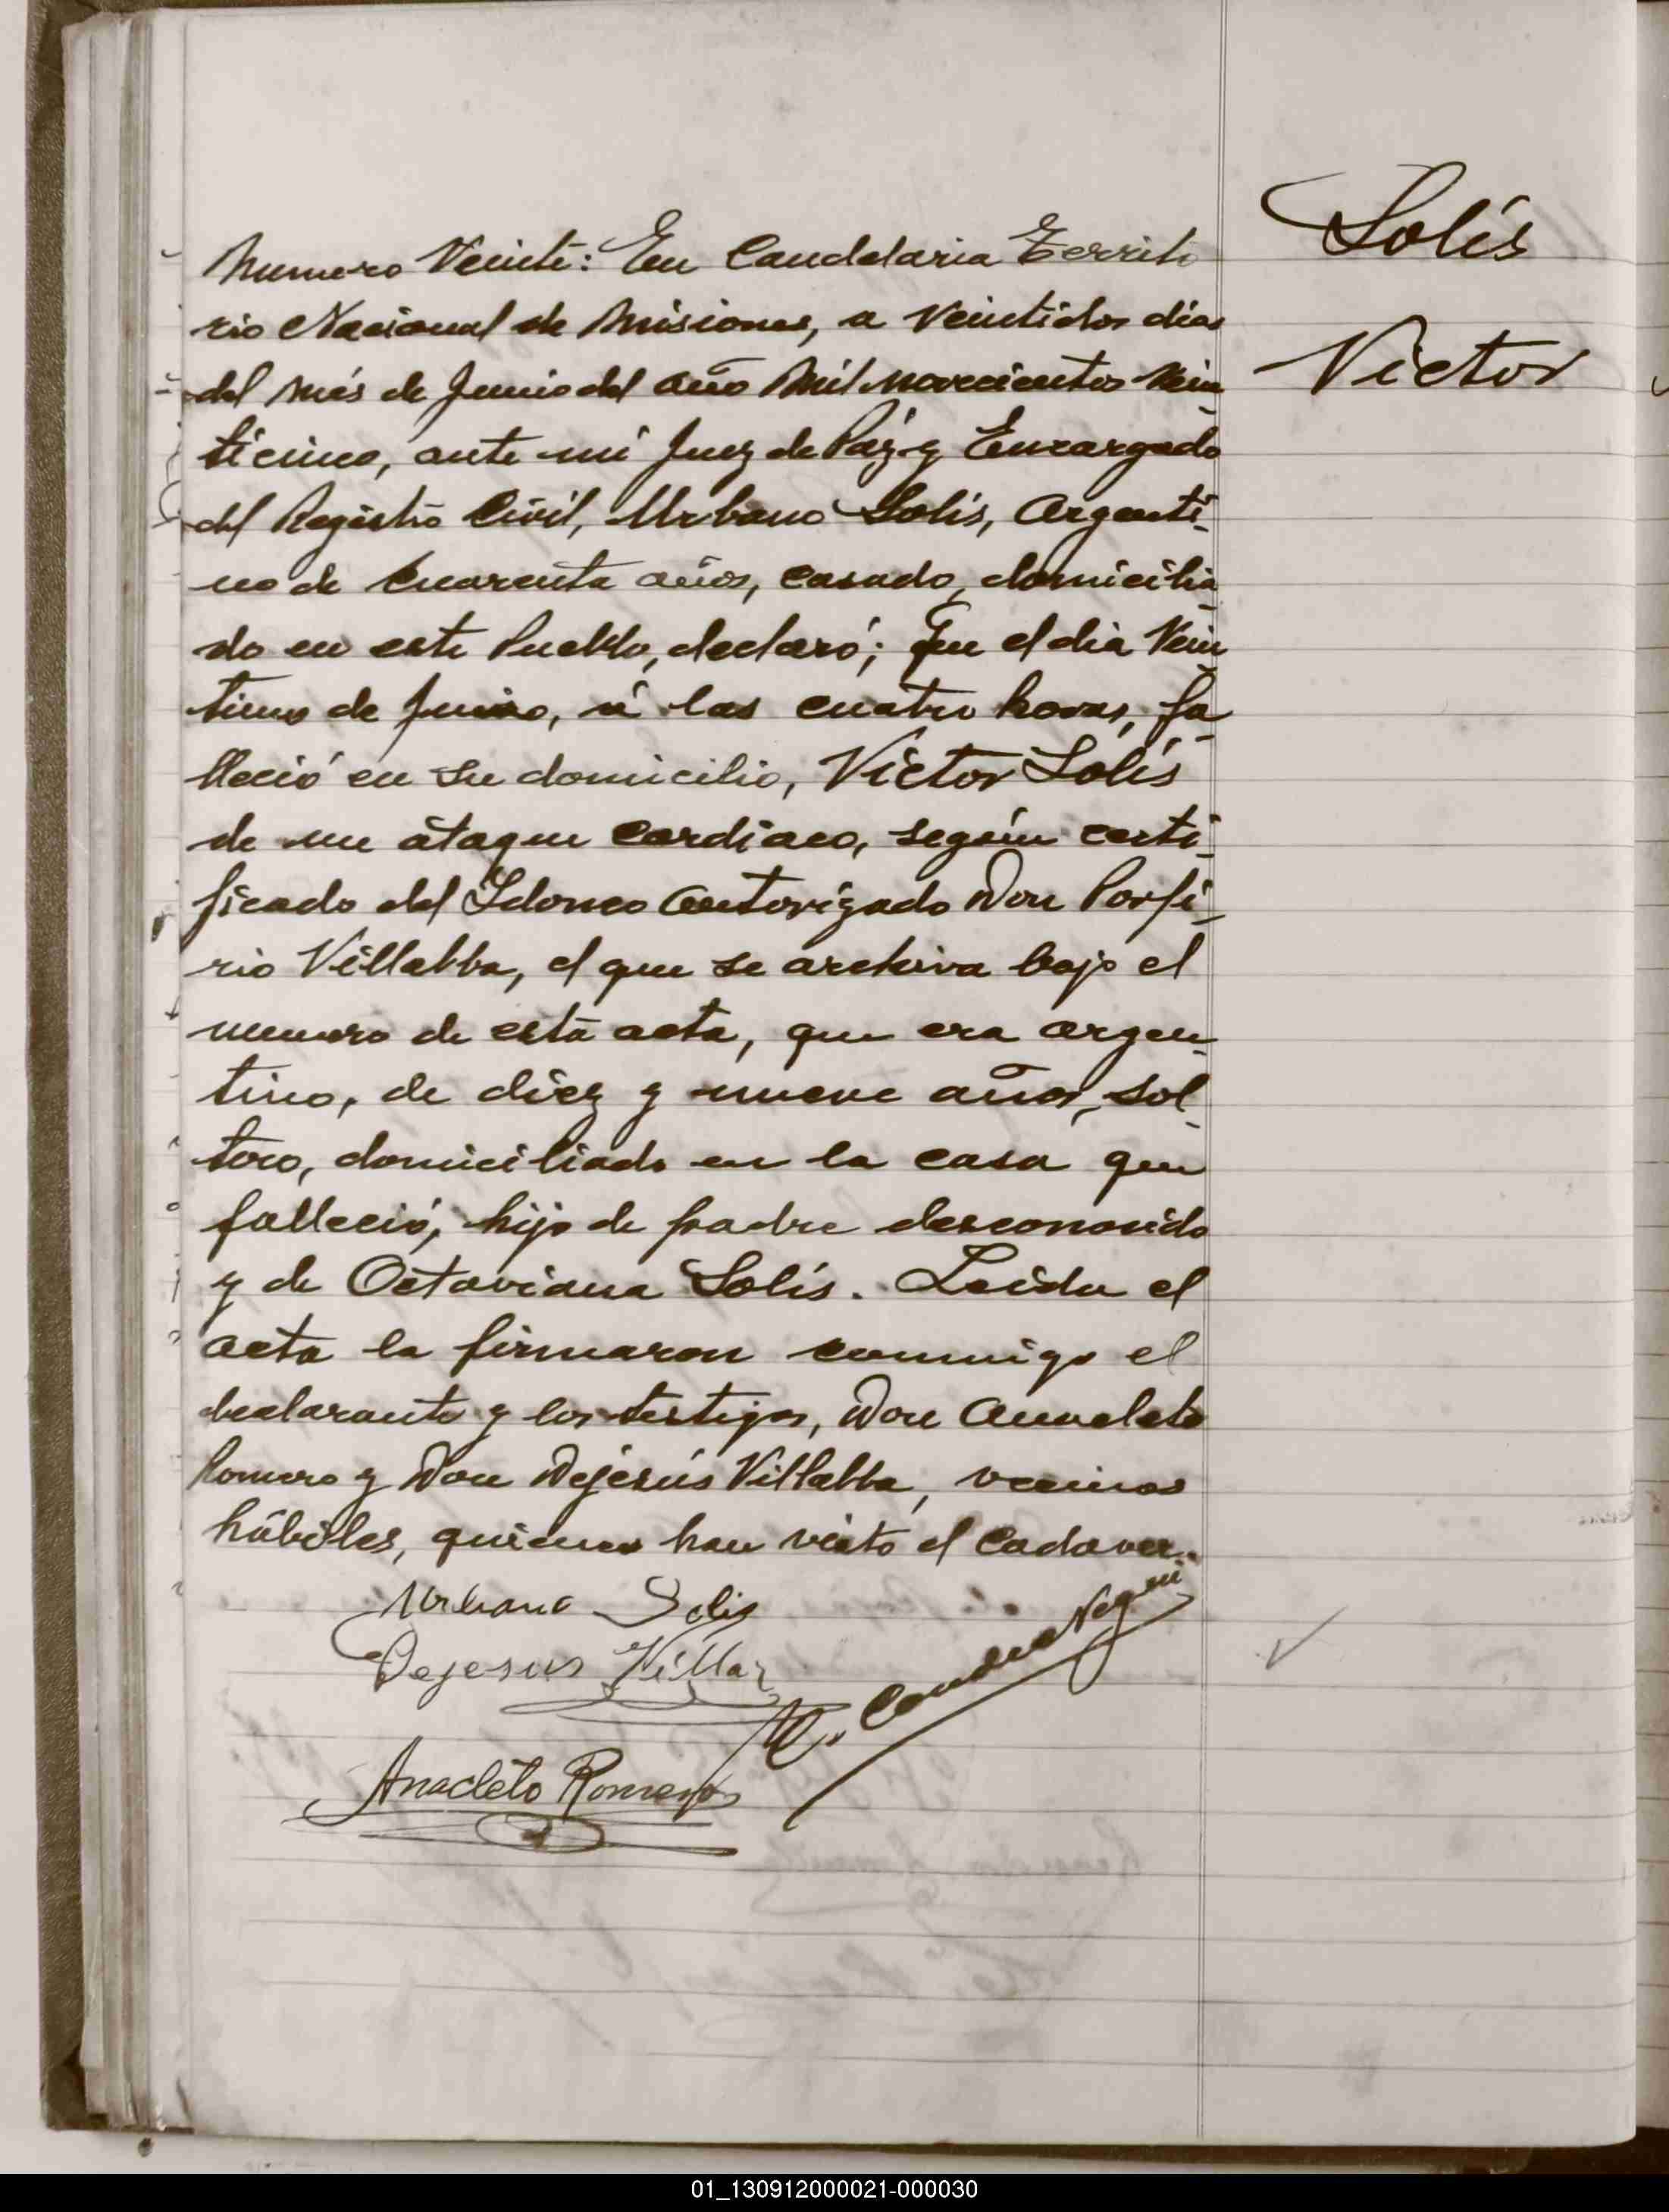 Solís
Victor
Numero Veinte: En Candelaria Territo
rio Nacional de Misiones, a Veintidos dias
del més de Junio del año Mil novecientos Vein
ticinco, ante mi Juez de Páz y Encargado
del Registro Civil, Urbano Solís, Argenti-
no de Cuarenta años, casado, domicilia-
do en este Pueblo, declaró; Que el dia Vein
tiuno de Junio, á las cuatro horas, fa-
lleció en su domicilio, Victor Solís
de un ataque cardiaco, según certi-
ficado del Idoneo Autorizado Don Porfi-
rio Villalba, el que se archiva bajo el
numero de esta acta, que era argen-
tino, de diez y nueve años, sol-
tero, domiciliado en la casa que
falleció, hijo de padre desconosido
y de Octaviana Solís. Leida el
acta la firmaron conmigo el
declarante y los testigos, Don Anacleto
Romero y Don Dejésús Villalba, vecinos
hábiles, quienes han visto el Cadaver.
Urbano Solis
Dejesus Villar
Anacleto Romero
01_130912000021-000030